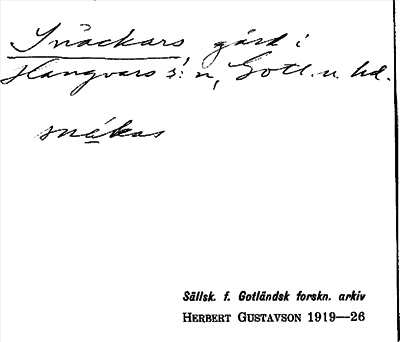 Snäckars, gård i
Hangvars s:n, Gotl. n. hd.
snékas
Sällsk. f. Gotländsk forskn. arkiv
HERBERT GUSTAVSON 1919—26